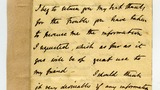 I beg to return you my best thanks
for the trouble you have taken
to procure me the information
I requested, which as far as it
goes will be of great use to
my friend.
I should think
it very desirable if any information